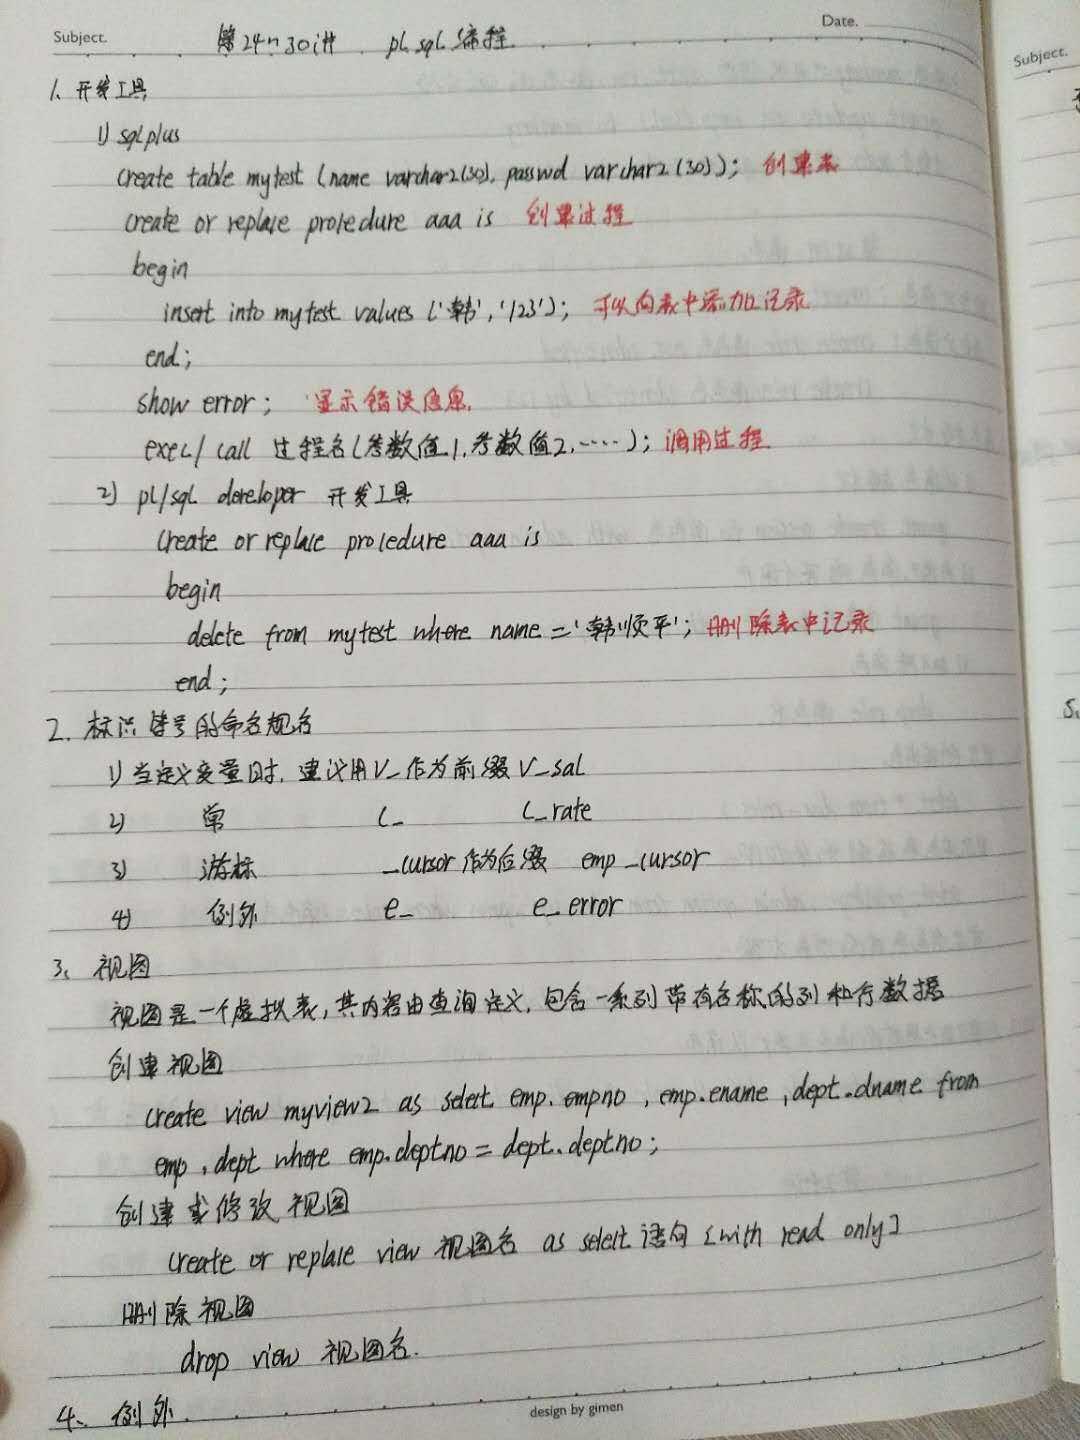 Subject.
Date.
第24~30讲 pl sql 编程
1、开发工具
1) sqlplus
create table mytest (name varchar2(30), passwd varchar2(30)); 创建表
create or replace procedure aaa is 创建过程
begin
insert into mytest values ('韩','123'); 可以向表中添加记录
end;
show error; 显示错误信息.
exec/ call 过程名(参数值1,参数值2,·····); 调用过程
2) pl/sql developer 开发工具
create or replace procedure aaa is
begin
delete from mytest where name ='韩顺平'; 删除表中记录
end;
2. 标识符号的命名规名
1) 当定义变量时, 建议用V_作为前缀 V_sal
2) 常 c_ c_rate
3) 游标 _cursor 作为后缀 emp_cursor
4) 例外 e_ e_error
3、视图
视图是一个虚拟表,其内容由查询定义,包含一系列带有名称的列和行数据
创建视图
create view myview2 as select emp.empno , emp.ename , dept.dname from
emp , dept where emp.deptno = dept.deptno;
创建或修改视图
create or replace view 视图名 as select 语句 [with read only]
删除视图
drop view 视图名.
4、例外
design by gimen
Subject.
5.